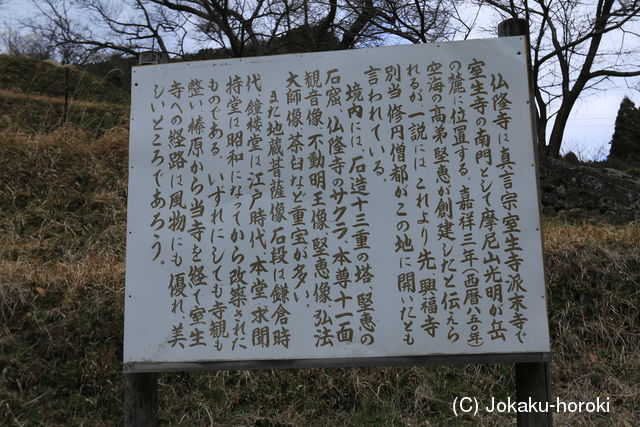 仏隆寺は真言宗室生寺派末寺で
室生寺の南門として摩尼山光明が岳
の麓に位置する。嘉祥三年(西暦八五〇年)
空海の高弟堅恵が創建したと伝えら
れるが、一説には、これより先、興福寺
別当修円僧都がこの地に開いたとも
言われている。
境内には、石造十三重の塔、堅恵の
石窟、仏隆寺のサクラ、本尊十一面
観音像、不動明王像、堅恵像、弘法
大師像、茶臼など重宝が多い。
また地蔵菩薩像、石段は鎌倉時
代、鐘楼堂は江戸時代、本堂、求聞
持堂は昭和になってから改築された
ものである。いずれにしても寺観も
整い、榛原から当寺を経て室生
寺への経路は風物にも優れ、美
しいところであろう。
(C) Jokaku-horoki